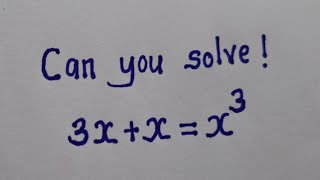 Can you solve!
3x+x=x³